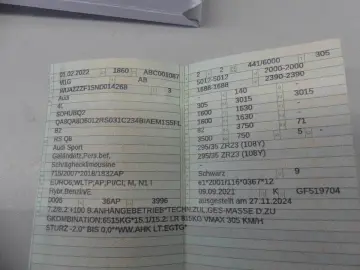 01.02.2022 1860 ABC001087
WUG AB
WUAZZZF15N0014268 3
Audi
4L
Audi Sport
Geländefz.Pers.bef.
Schräghecklimousine
715/2007*2018/1832AP
EURO6,WLTP,AP,PI/CI, M, N1-I
Hybr.Benzin/E
0006 36AP 3996
7.2/8.2:+100 B.ANHÄNGEBETRIEB*TECHN.ZUL.GES-MASSE D.ZU
GKOMBINATION:6515KG*15.1/15.2: LR 815KG VMAX 305 KM/H
STURZ -2.0° BIS 0,0°*WW.AHK LT.EGTG*
2 2 441/6000 305
5017-5017 2000-2000
1688-1688 2390-2390
140 - 3015
305 3015
1600 1630 -
1600 1630 -
82 3500 - 71
82 3750 5 -
295/35 ZR23 (108Y)
295/35 ZR23 (108Y)
-
Schwarz 9
e1*2001/116*0367*12
09.09.2021 K GF519704
ausgestellt am 27.11.2024